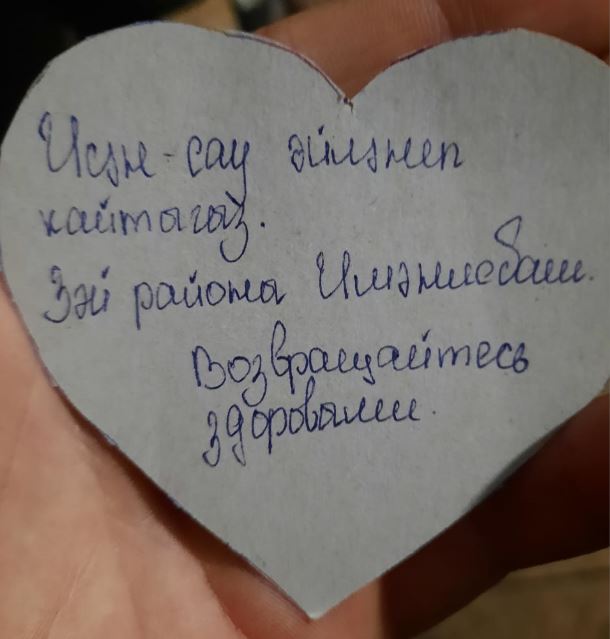 Исән-сау әйләнеп
кайтагыз.
Зәй района Имәнлебаш.
Возвращайтесь
здоровыми.